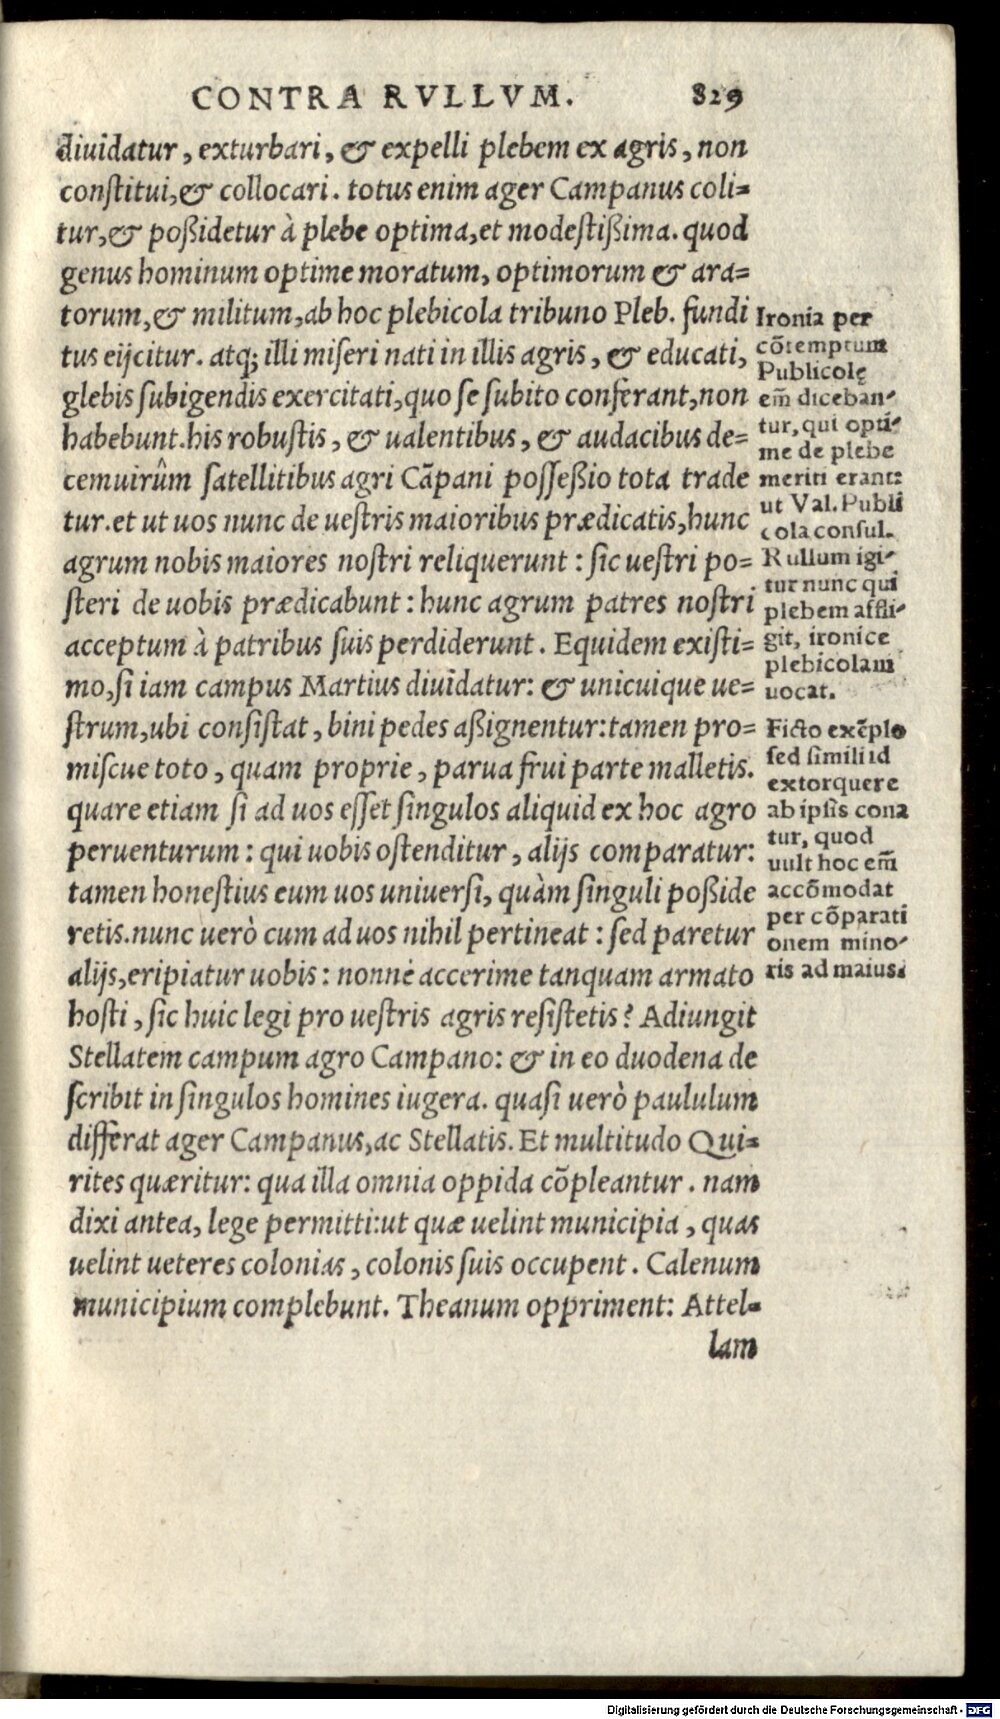 CONTRA RVLLVM. 829
diuidatur, exturbari, & expelli plebem ex agris, non
constitui, & collocari. totus enim ager Campanus coli-
tur, & poßidetur à plebe optima, et modestißima. quod
genus hominum optime moratum, optimorum & ara-
torum, & militum, ab hoc plebicola tribuno Pleb. fundi
tus eijcitur. atq; illi miseri nati in illis agris, & educati,
glebis subigendis exercitati, quo se subito conferant, non
habebunt. his robustis, & ualentibus, & audacibus de-
cemuirûm satellitibus agri Cãpani possessio tota trade
tur. et ut uos nunc de uestris maioribus prædicatis, hunc
agrum nobis maiores nostri reliquerunt: sic uestri po-
steri de uobis prædicabunt: hunc agrum patres nostri
acceptum à patribus suis perdiderunt. Equidem existi-
mo, si iam campus Martius diuidatur: & unicuique ue-
strum, ubi consistat, bini pedes aßignentur: tamen pro-
miscue toto, quam proprie, parua frui parte malletis.
quare etiam si ad uos esset singulos aliquid ex hoc agro
peruenturum: qui uobis ostenditur, alijs comparatur:
tamen honestius eum uos uniuersi, quàm singuli poßide
retis. nunc uerò cum ad uos nihil pertineat: sed paretur
alijs, eripiatur uobis: nonne accerime tanquam armato
hosti, sic huic legi pro uestris agris resistetis? Adiungit
Stellatem campum agro Campano: & in eo duodena de
scribit in singulos homines iugera. quasi uerò paululum
differat ager Campanus, ac Stellatis. Et multitudo Qui-
rites quæritur: qua illa omnia oppida cõpleantur. nam
dixi antea, lege permitti: ut quæ uelint municipia, quas
uelint ueteres colonias, colonis suis occupent. Calenum
municipium complebunt. Theanum oppriment: Attel-
lam
Ironia per
cõtemptum
Publicolę
em̃ diceban-
tur, qui opti-
me de plebe
meriti erant:
ut Val. Publi
cola consul.
Rullum igi-
tur nunc qui
plebem affli-
git, ironice
plebicolam
uocat.
Ficto exẽplo
sed simili id
extorquere
ab ipsis cona
tur, quod
uult hoc em̃
accõmodat
per cõparati
onem mino-
ris ad maius.
Digitalisierung gefördert durch die Deutsche Forschungsgemeinschaft - DFG